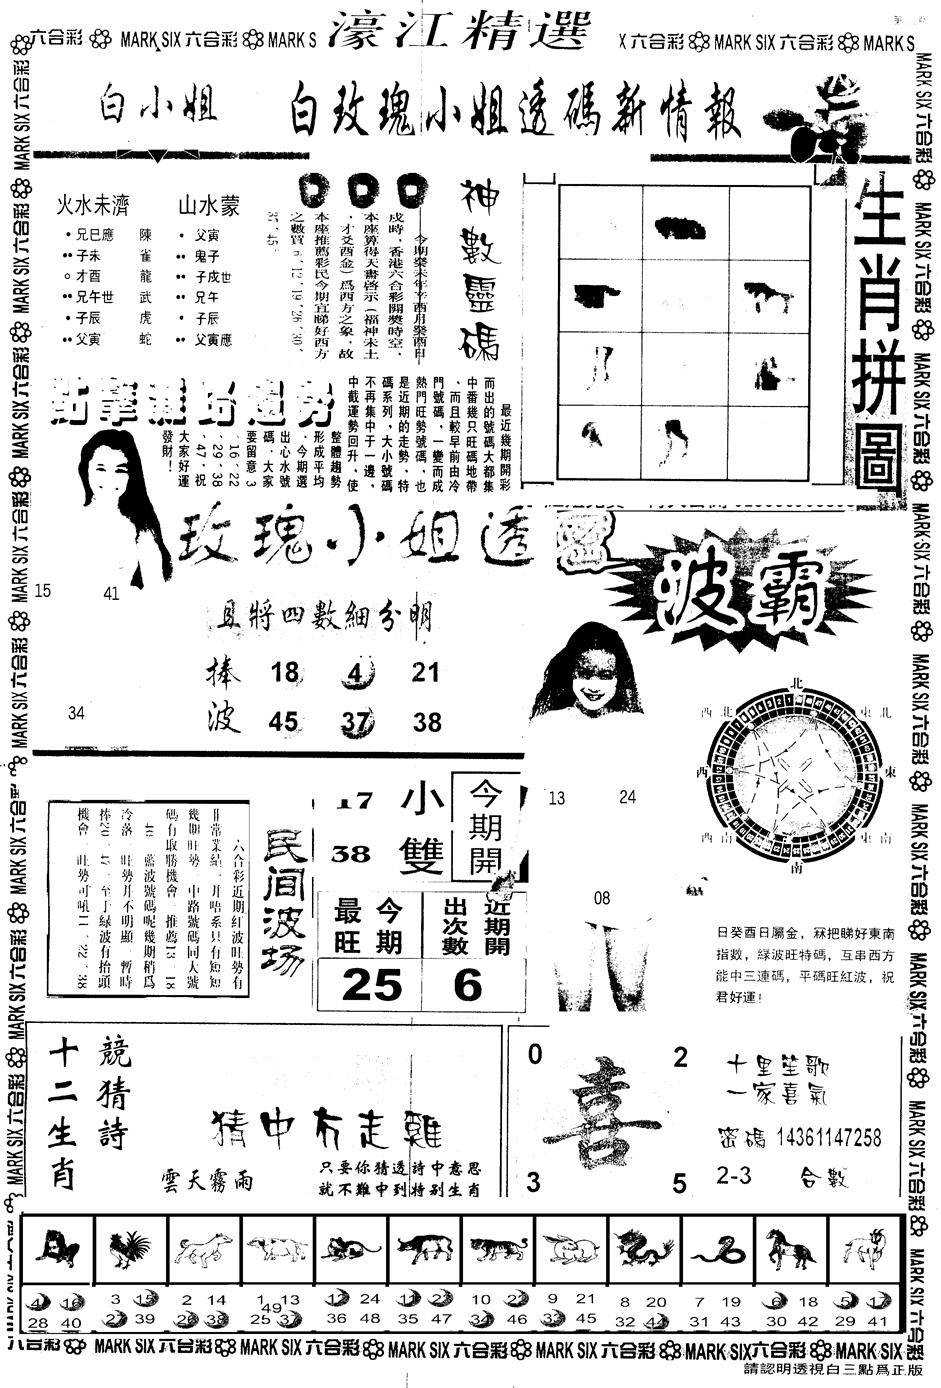 濠江精選
六合彩 MARK SIX 六合彩 MARK S
X 六合彩 MARK SIX 六合彩 MARK S
白小姐 白玫瑰小姐透碼新情報
火水未濟 山水蒙
兄巳應 陳 父寅
子未 雀 鬼子
才酉 龍 子戌世
兄午世 武 兄午
子辰 虎 子辰
父寅 蛇 父寅應
神數靈碼
今期癸未年辛酉月癸酉日
戌時，香港六合彩開獎時空，
本座算得天書啓示（福神未土
，才爻酉金）爲西方之象，故
本座推薦彩民今期宜睇好西方
之數買
生肖拼圖
最近幾期開彩
而出的號碼大都集
中番幾只旺碼地帶
、而且較早前由冷
門號碼，一變而成
熱門旺勢號碼，也
是近期的走勢，特
碼系列，大小號碼
不再集中于一邊，
中截運勢回升，使
整體趨勢
形成平均
、今期選
出心水號
碼、大家
要留意 3
、16、22
、29、38
、47、祝
大家好運
發財！
玫瑰小姐透
靈
波霸
15 41
34
且將四數細分明
捧 18 4 21
波 45 37 38
13 24
08
北
西北 東北
西 東
西南 東南
南
日癸酉日屬金，冧把睇好東南
指數，綠波旺特碼，互串西方
能中三連碼，平碼旺紅波，祝
君好運！
六合彩近期紅波旺勢有
非常業績，升唔系只有短短
幾期旺勢 中路號碼同大號
碼有取勝機會 推薦13 18
40 藍波號碼呢幾期稍爲
冷落 旺勢并不明顯 暫時
捧20 47 至于綠波有抬頭
機會 旺勢可吼11、22、38
民间波场
17 小
38 雙
今期開
最旺 今期
近期開出次數
25 6
十二生肖
競猜詩
猜中冇走雞
雲天霧雨
只要你猜透詩中意思
就不難中到特別生肖
0 2
喜
3 5
十里笙歌
一家喜氣
密碼 14361147258
2-3 合數
4 16 3 15 2 14 1 13 12 24 11 23 10 22 9 21 8 20 7 19 6 18 5 17
49
28 40 27 39 26 38 25 37 36 48 35 47 34 46 33 45 32 44 31 43 30 42 29 41
六合彩 MARK SIX 六合彩 MARK SIX 六合彩 MARK SIX 六合彩 MARK SIX 六合彩 MARK SIX 六合彩 MARK SIX 六合彩
請認明透視白三點爲正版